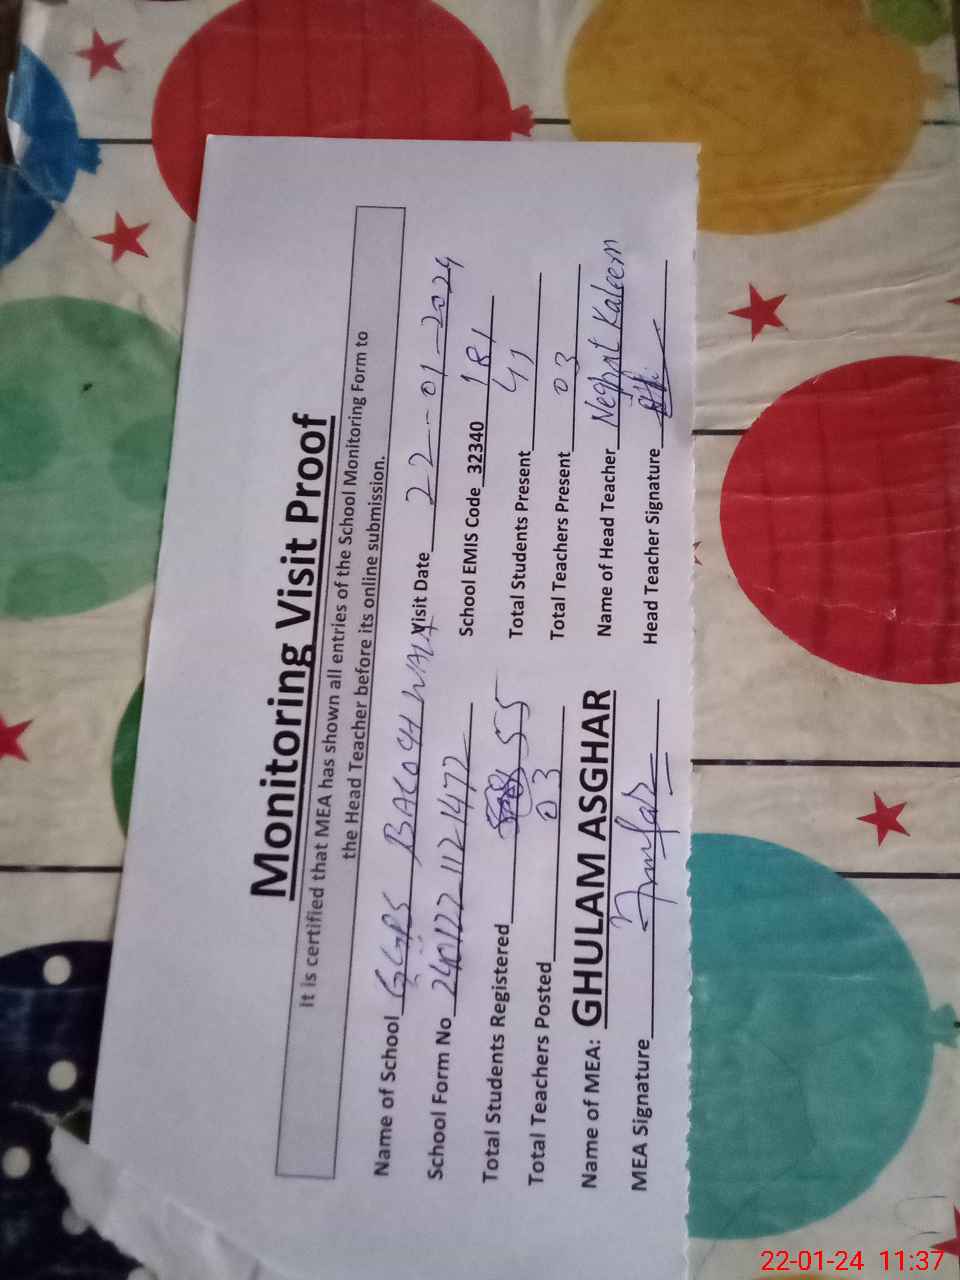 Monitoring Visit Proof
It is certified that MEA has shown all entries of the School Monitoring Form to
the Head Teacher before its online submission.
Name of School GGPS BALOCH WALA Visit Date 22-01-2024
School Form No 240122-112-1472 School EMIS Code 32340 181
Total Students Registered 55 Total Students Present 41
Total Teachers Posted 03 Total Teachers Present 03
Name of MEA: GHULAM ASGHAR Name of Head Teacher Neghat Kaleem
MEA Signature Head Teacher Signature
22-01-24 11:37